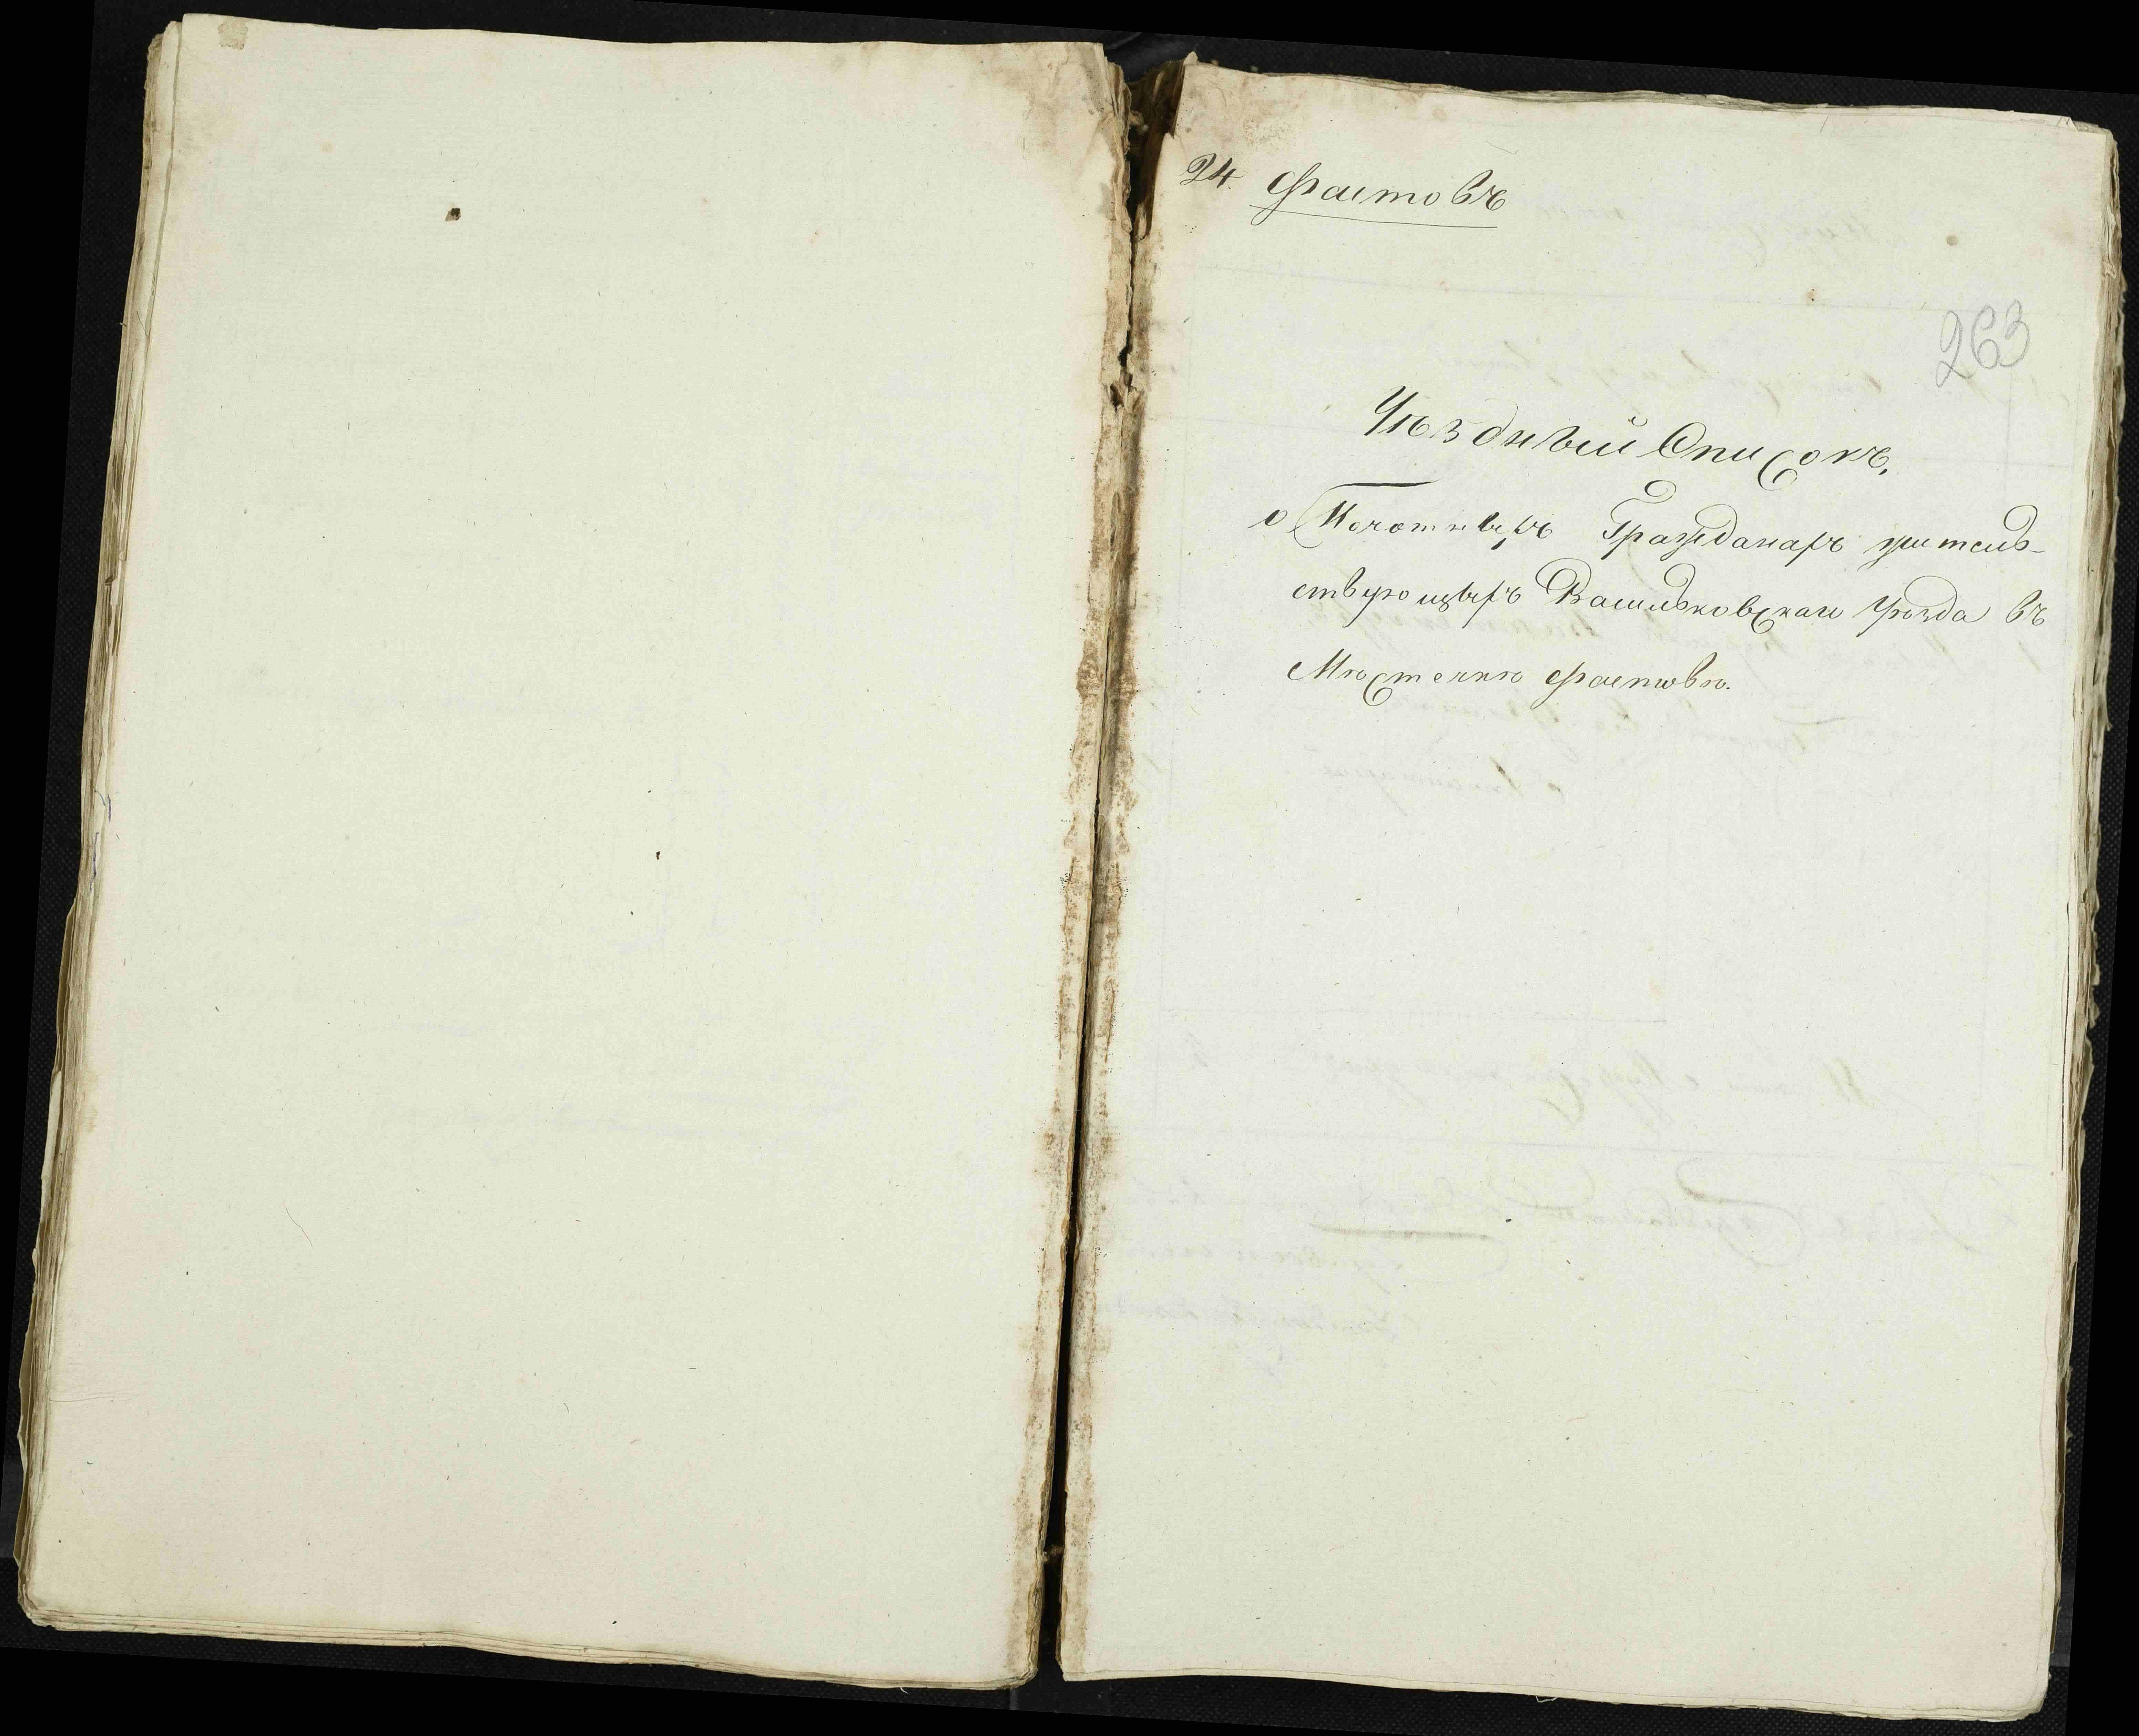 24. Фастовъ
263
Уѣздный Списокъ,
о Почотныхъ Гражданахъ жител-
ствующыхъ Васильковскаго уѣзда въ
Мѣстечкѣ Фастовѣ.